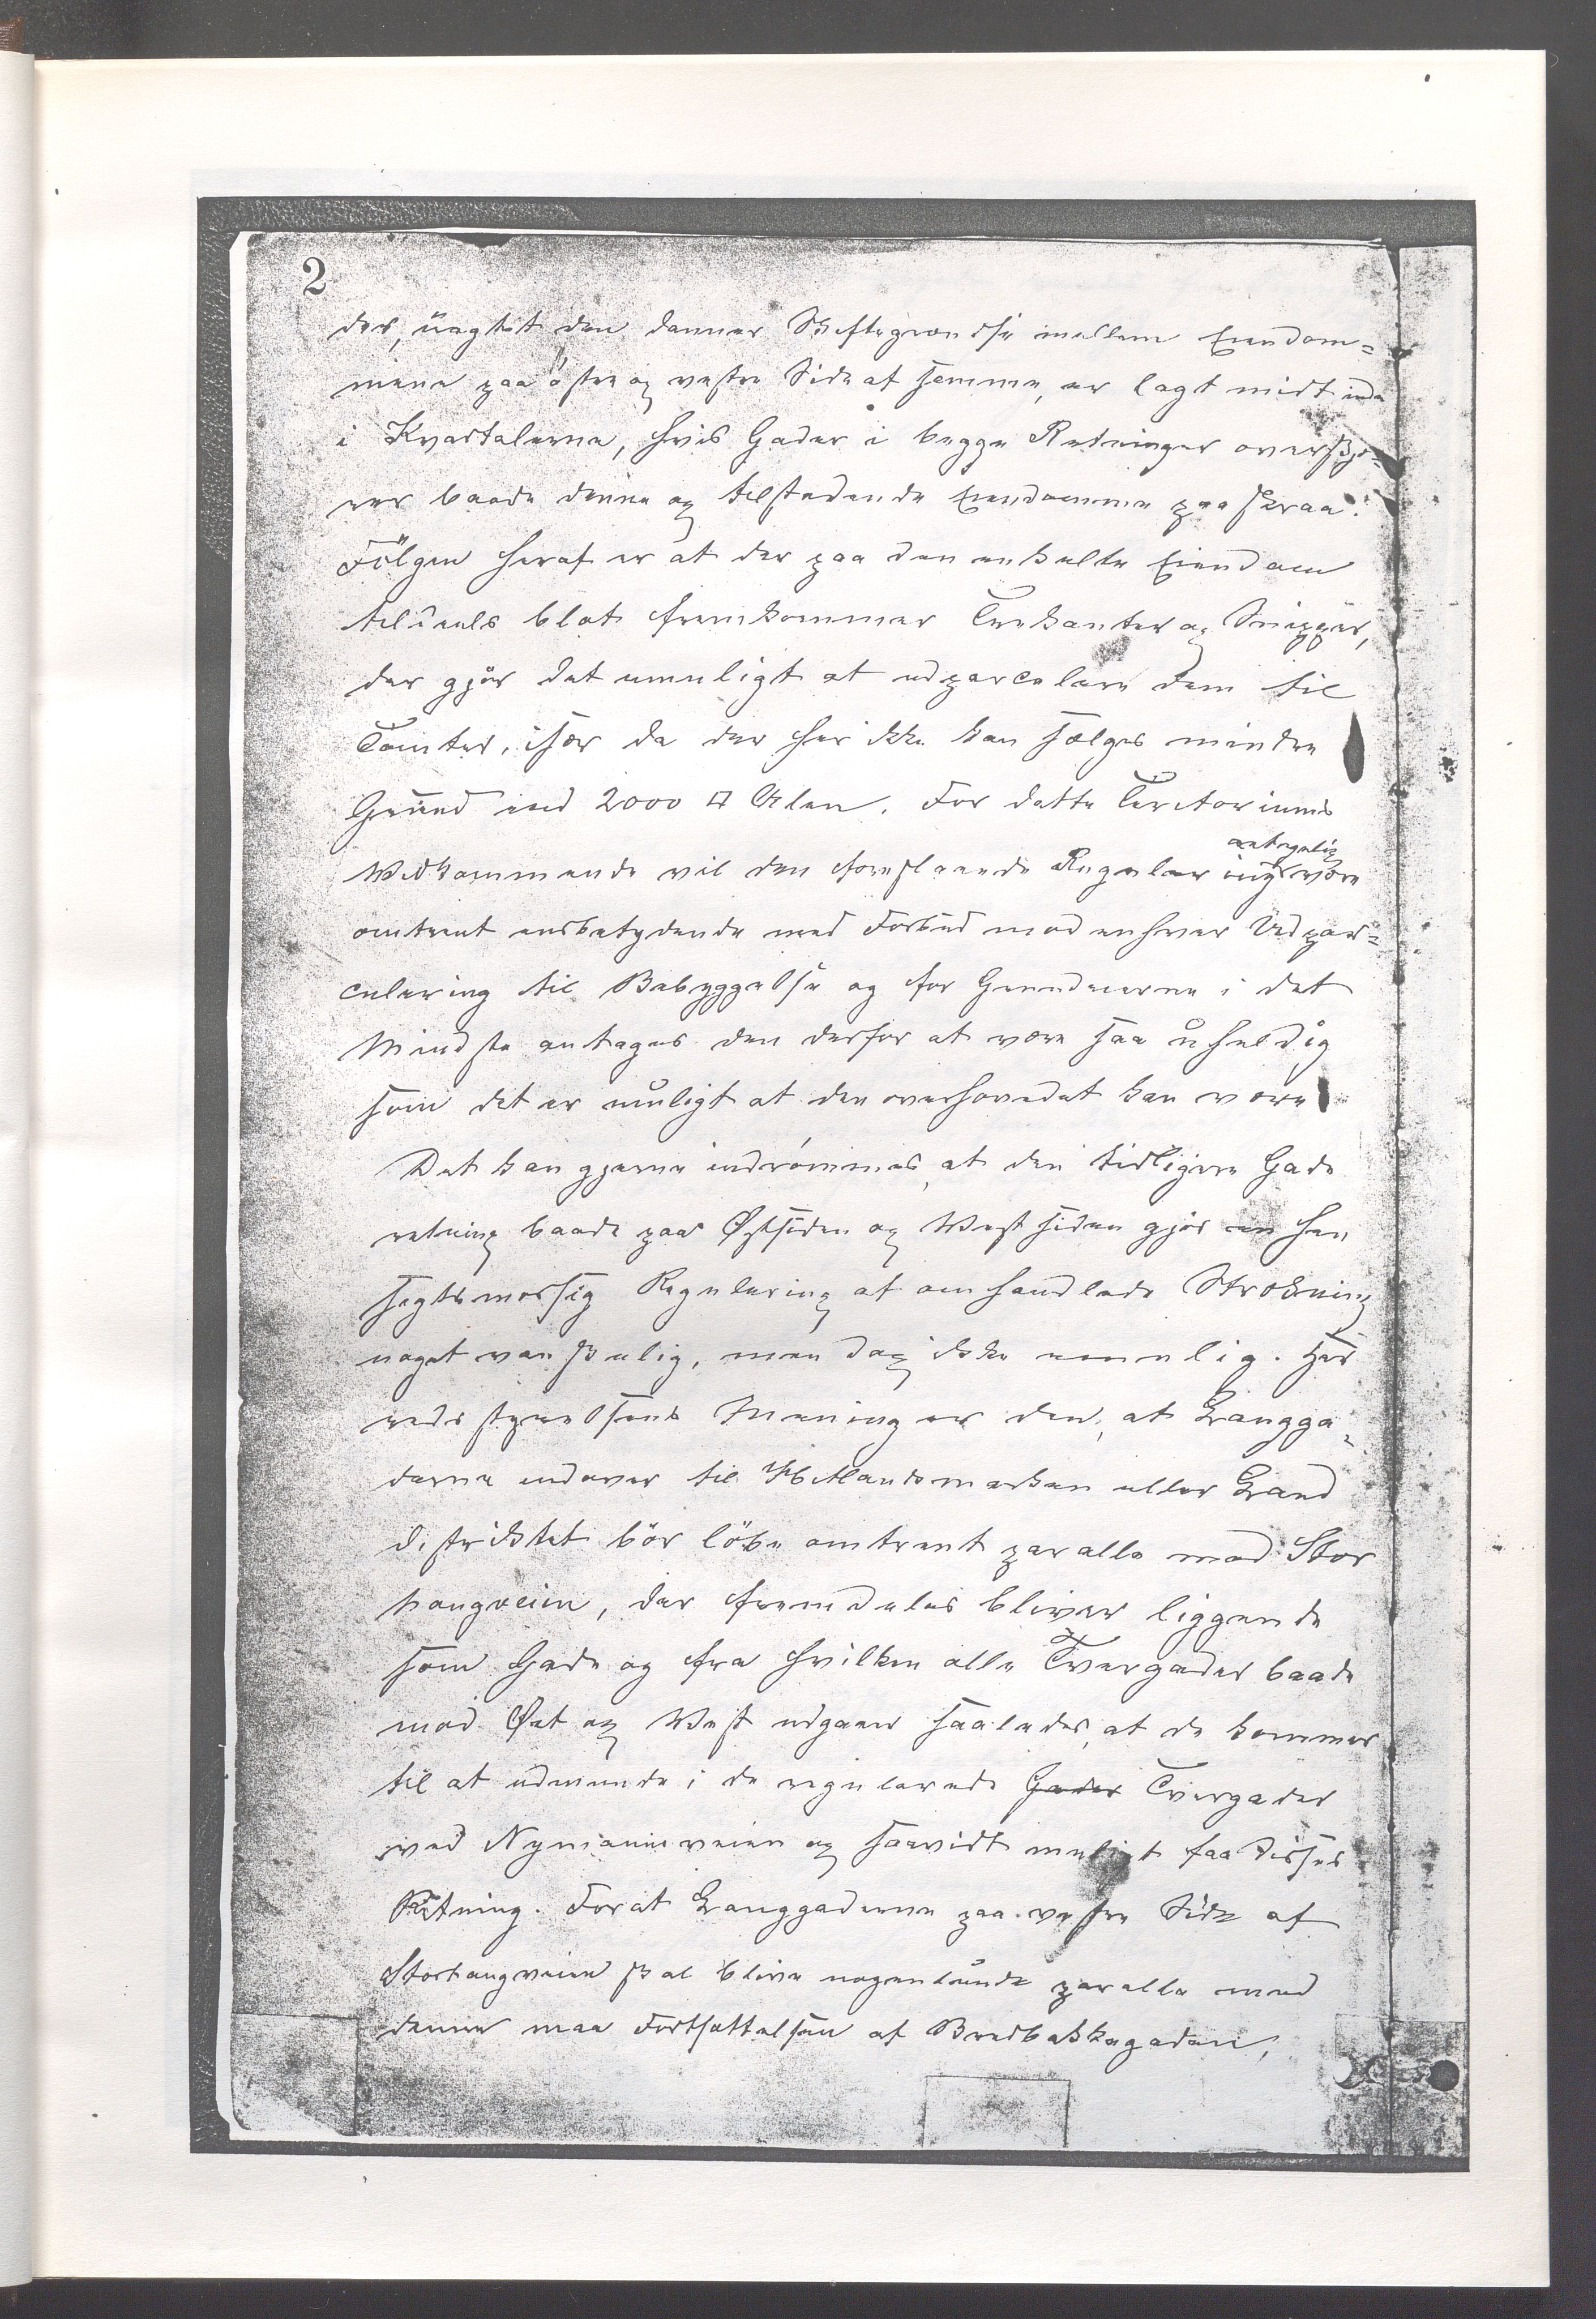 2
der, uagtet den danner Skiftegrændse mellem Eiendom=
mene paa östre og vestre Side af samme, er lagt midt inde
i Kvartalerne, hvis Gader i begge Retninger overskjæ=
rer baade denne og tilstødende Eiendomme paa skraa.
Fölgen heraf er at der paa den enkelte Eiendom
tildeels blot fremkommer Trekanter og Snipper,
der gjör det umuligt at udparcelere dem til
Tomter, især da der her ikke kan sælges mindre
Grund end 2000 □ Alen. For dette Teritoriums
Vedkommende vil den foreslaaede Regulering antagelig være
omtrent ensbetydende med Forbud mod enhver Udpar=
celering til Bebyggelse og for Grundeierne i det
Mindste antages den derfor at være saa uheldig
som det er muligt at den overhovedet kan være
Det kan gjerne indrömmes, at den tidligere Gade
retning baade paa Østsiden og Vestsiden gjör en hen
sigtsmæssig Regulering af omhandlede Strækning
noget vanskelig, men dog ikke umulig. Her
redsstyrelsens Mening er den, at Langga=
derne udover til Hetlandsmarken eller Land
distriktet bör löbe omtrent paralle med Stor
haugveien, der fremdeles bliver liggende
som Gade og fra hvilken alle Tvergader baade
mod Øst og Vest udgaaer saaledes, at de kommer
til at udmunde i de regulerede Gader Tvergader
ved Nymansveien og saavidt muligt faa disses
Retning. Forat Langgaderne paa vestre Side af
Storhaugveien skal blive nogenlunde paralle med
denne maa Fortsættelsen af Bredbakkegaden,